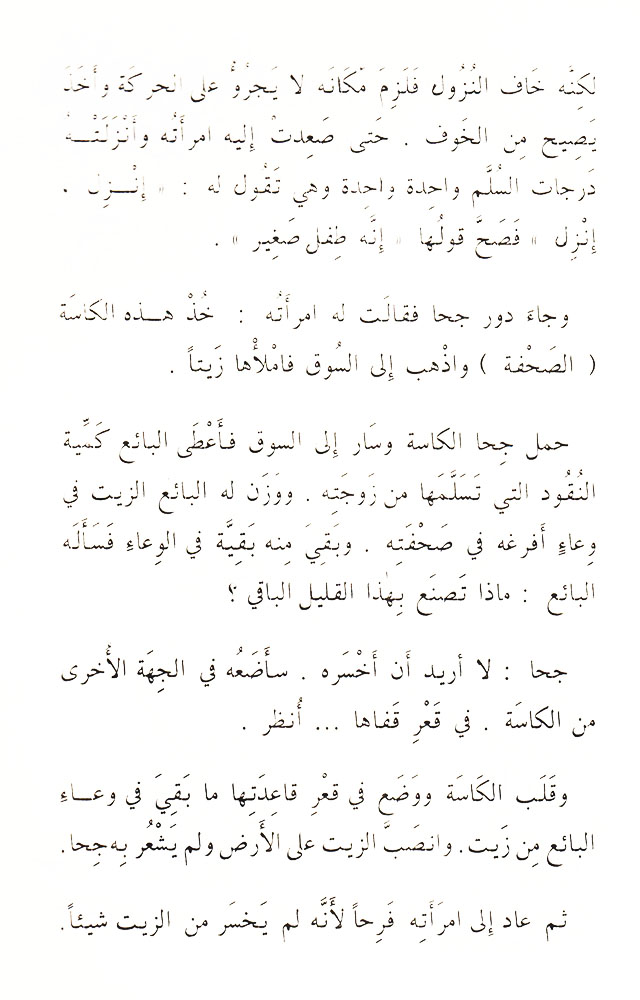 لكِنَّه خَاف النُزُول فَلَزِمَ مَكَانَه لا يَجرُوُ على الحركَة وأَخَذَ
يَصِيح مِن الخَوف . حَتى صَعِدتْ إليه امرأَتُه وأَنْزَلَتْــهُ
دَرجات السُلَّم واحِدة واحِدة وهي تَقُول له : « إنْــزِل .
إنْزِل » فَصَحَّ قولُها « إنَّه طِفل صَغِير » .
وجاءَ دور جحا فقالَت له امرأَتُه : خُذْ هــذه الكاسَة
( الصَحْفة ) واذْهب إلى السُوق فامْلأْها زَيتاً .
حمل جِحا الكاسة وسَار إلى السوق فأَعْطَى البائع كَمِّية
النُقُود التي تَسَلَّمَها من زَوجَتِه . ووَزَن له البائع الزيت في
وِعاءٍ أَفرغه في صَحْفَتِه . وبَقيَ مِنه بَقِيَّة في الوِعاءِ فَسَأَلَه
البائع : ماذا تَصنَع بِهٰذا القليل الباقي ؟
جحا : لا أريد أَن أَخْسَره . سأَضَعُه في الجِهَة الأُخرى
من الكاسَة . في قَعْرِ قَفاها ... أُنظر .
وقَلَب الكَاسَة ووَضَع في قعْرِ قاعِدَتِها ما بَقِيَ في وعــاءِ
البائع مِن زَيت. وانصَبَّ الزيت على الأَرض ولم يَشْعُر بِه جِحا.
ثم عاد إلى امرَأَتِه فَرِحاً لأَنَّه لم يَخسَر من الزيت شيئاً.